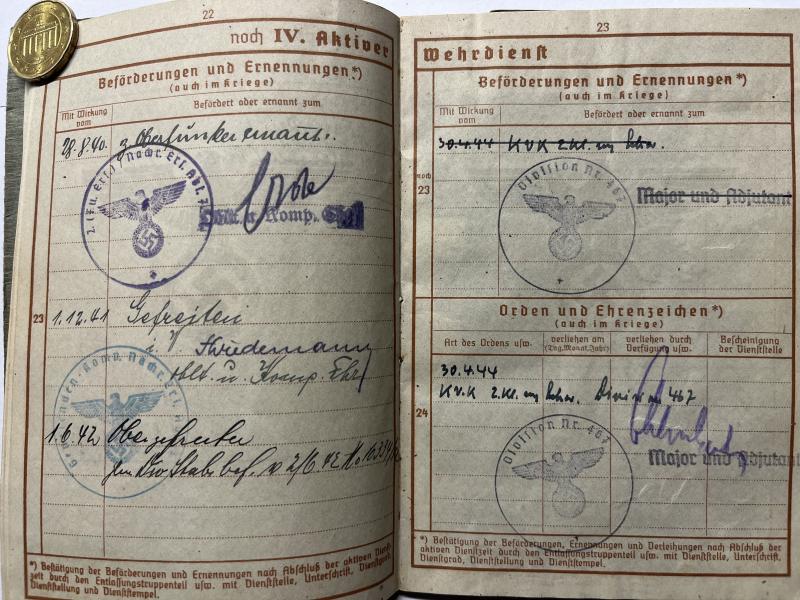 22
noch IV. Aktiver
Beförderungen und Ernennungen*)
(auch im Kriege)
Mit Wirkung vom
Befördert oder ernannt zum
28.8.40. z. Oberfunker ernannt.
2. (Fu. Ers.) Nachr. Ers. Abt. 7
u. Komp.
23
1.12.41 Gefreiten
Oblt. u. Komp.
Komp. Nachr. Ers.
1.6.42 Obergefreiter
v. 2/6.42 No
*) Bestätigung der Beförderungen und Ernennungen nach Abschluß der aktiven Dienst-
zeit durch den Entlassungstruppenteil usw. mit Dienststelle, Unterschrift, Dienstgrad,
Dienststellung und Dienststempel.
23
Wehrdienst
Beförderungen und Ernennungen*)
(auch im Kriege)
Mit Wirkung vom
Befördert oder ernannt zum
30.4.44 KVK 2.Kl. m. Schw.
noch
23
Division Nr. 467
Major und Adjutant
Orden und Ehrenzeichen*)
(auch im Kriege)
Art des Ordens usw.
verliehen am (Tag, Monat, Jahr)
verliehen durch Verfügung usw.
Bescheinigung der Dienststelle
30.4.44
KVK 2.Kl. m. Schw. Division 467
24
Division Nr. 467
Major und Adjutant
*) Bestätigung der Beförderungen, Ernennungen und Verleihungen nach Abschluß der
aktiven Dienstzeit durch den Entlassungstruppenteil usw. mit Dienststelle, Unterschrift,
Dienstgrad, Dienststellung und Dienststempel.